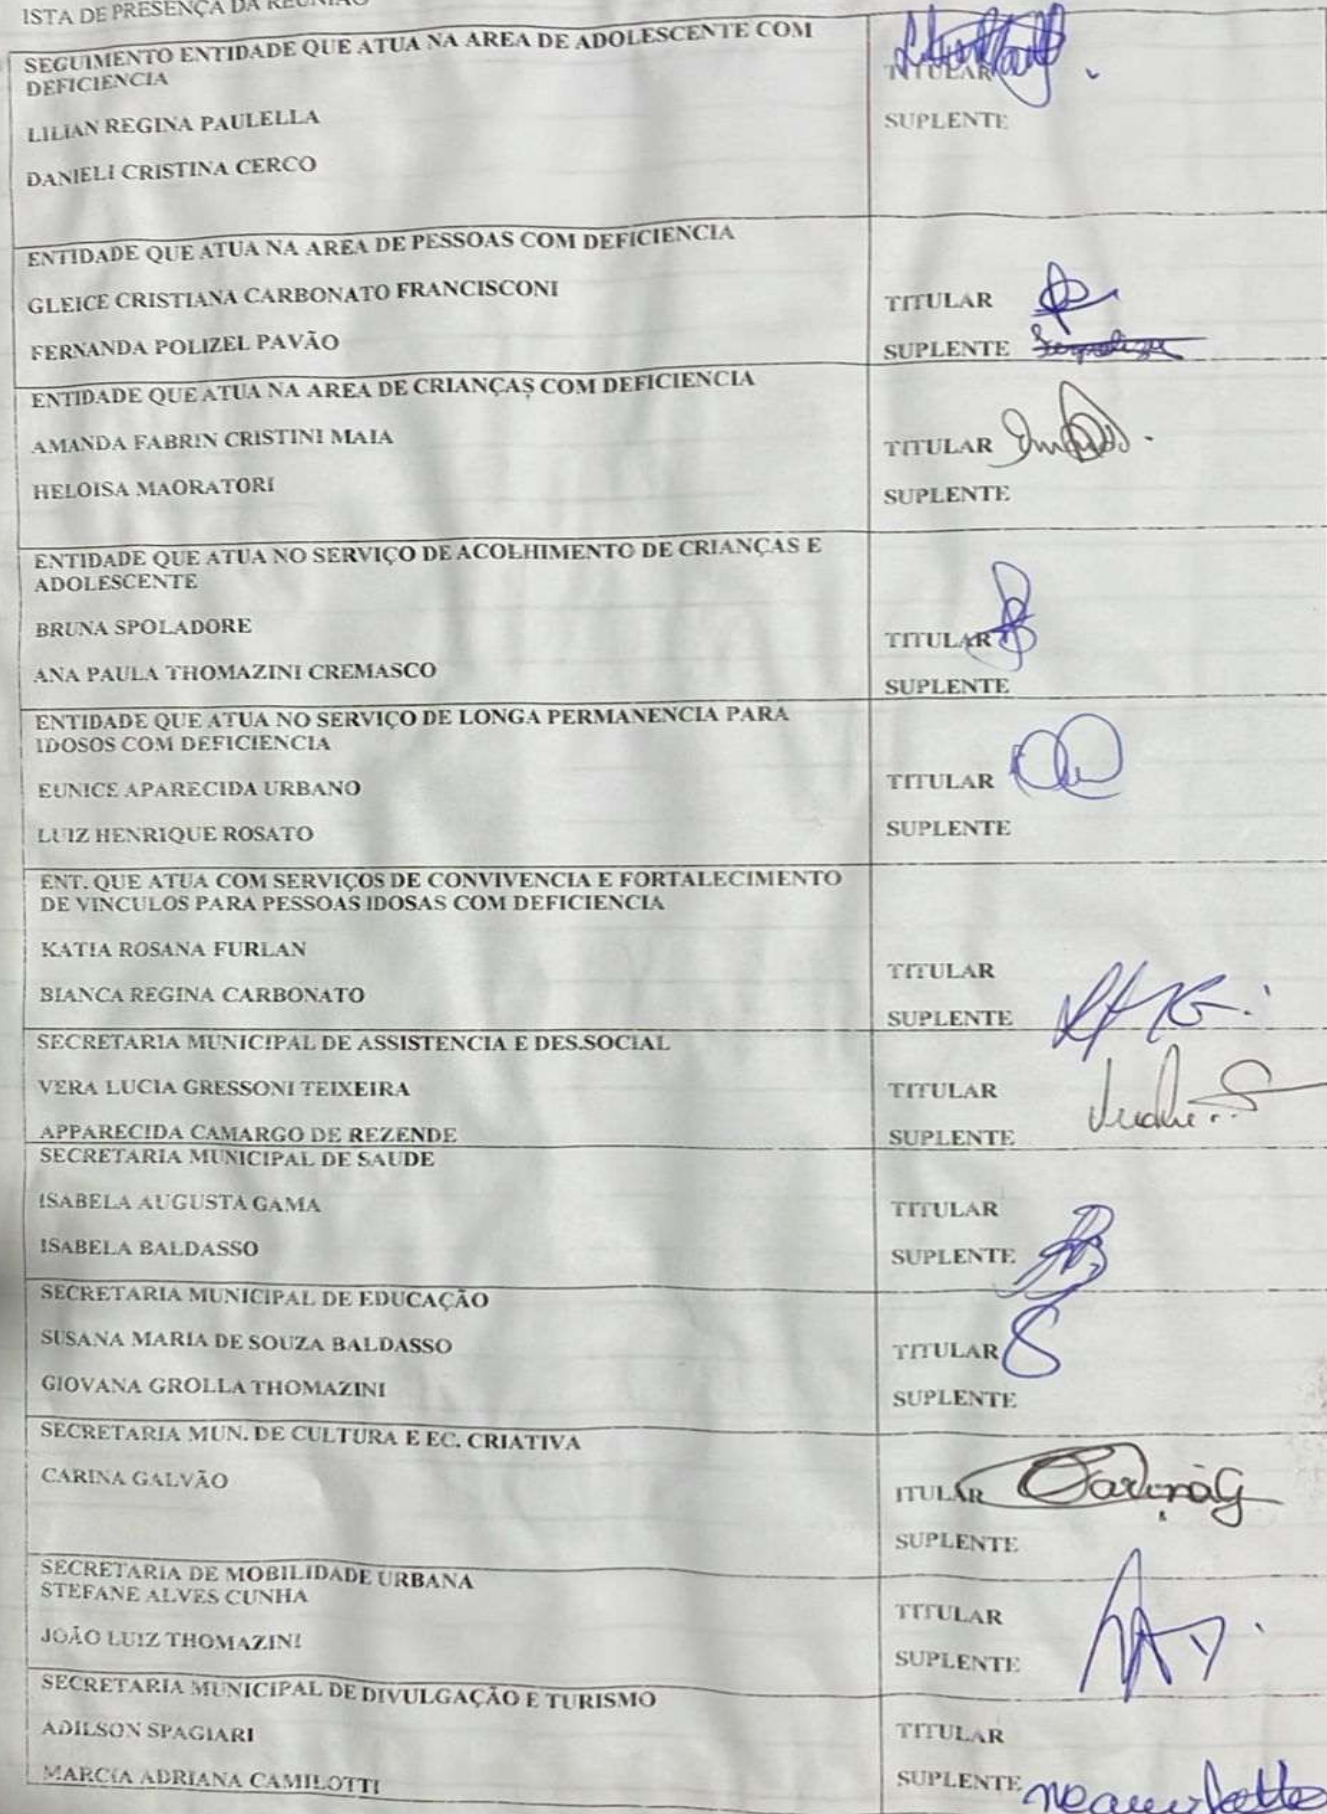 ISTA DE PRESENÇA DA REUNIÃO
SEGUIMENTO ENTIDADE QUE ATUA NA AREA DE ADOLESCENTE COM
DEFICIENCIA
TITULAR
LILIAN REGINA PAULELLA
SUPLENTE
DANIELI CRISTINA CERCO
ENTIDADE QUE ATUA NA AREA DE PESSOAS COM DEFICIENCIA
GLEICE CRISTIANA CARBONATO FRANCISCONI
TITULAR
FERNANDA POLIZEL PAVÃO
SUPLENTE
ENTIDADE QUE ATUA NA AREA DE CRIANÇAS COM DEFICIENCIA
AMANDA FABRIN CRISTINI MAIA
TITULAR
HELOISA MAORATORI
SUPLENTE
ENTIDADE QUE ATUA NO SERVIÇO DE ACOLHIMENTO DE CRIANÇAS E
ADOLESCENTE
BRUNA SPOLADORE
TITULAR
ANA PAULA THOMAZINI CREMASCO
SUPLENTE
ENTIDADE QUE ATUA NO SERVIÇO DE LONGA PERMANENCIA PARA
IDOSOS COM DEFICIENCIA
EUNICE APARECIDA URBANO
TITULAR
LUIZ HENRIQUE ROSATO
SUPLENTE
ENT. QUE ATUA COM SERVIÇOS DE CONVIVENCIA E FORTALECIMENTO
DE VINCULOS PARA PESSOAS IDOSAS COM DEFICIENCIA
KATIA ROSANA FURLAN
TITULAR
BIANCA REGINA CARBONATO
SUPLENTE
SECRETARIA MUNICIPAL DE ASSISTENCIA E DES.SOCIAL
VERA LUCIA GRESSONI TEIXEIRA
TITULAR
APPARECIDA CAMARGO DE REZENDE
SUPLENTE
SECRETARIA MUNICIPAL DE SAUDE
ISABELA AUGUSTA GAMA
TITULAR
ISABELA BALDASSO
SUPLENTE
SECRETARIA MUNICIPAL DE EDUCAÇÃO
SUSANA MARIA DE SOUZA BALDASSO
TITULAR
GIOVANA GROLLA THOMAZINI
SUPLENTE
SECRETARIA MUN. DE CULTURA E EC. CRIATIVA
CARINA GALVÃO
ITULAR CarinaG
SUPLENTE
SECRETARIA DE MOBILIDADE URBANA
STEFANE ALVES CUNHA
TITULAR
JOÃO LUIZ THOMAZINI
SUPLENTE
SECRETARIA MUNICIPAL DE DIVULGAÇÃO E TURISMO
ADILSON SPAGIARI
TITULAR
MARCIA ADRIANA CAMILOTTI
SUPLENTE